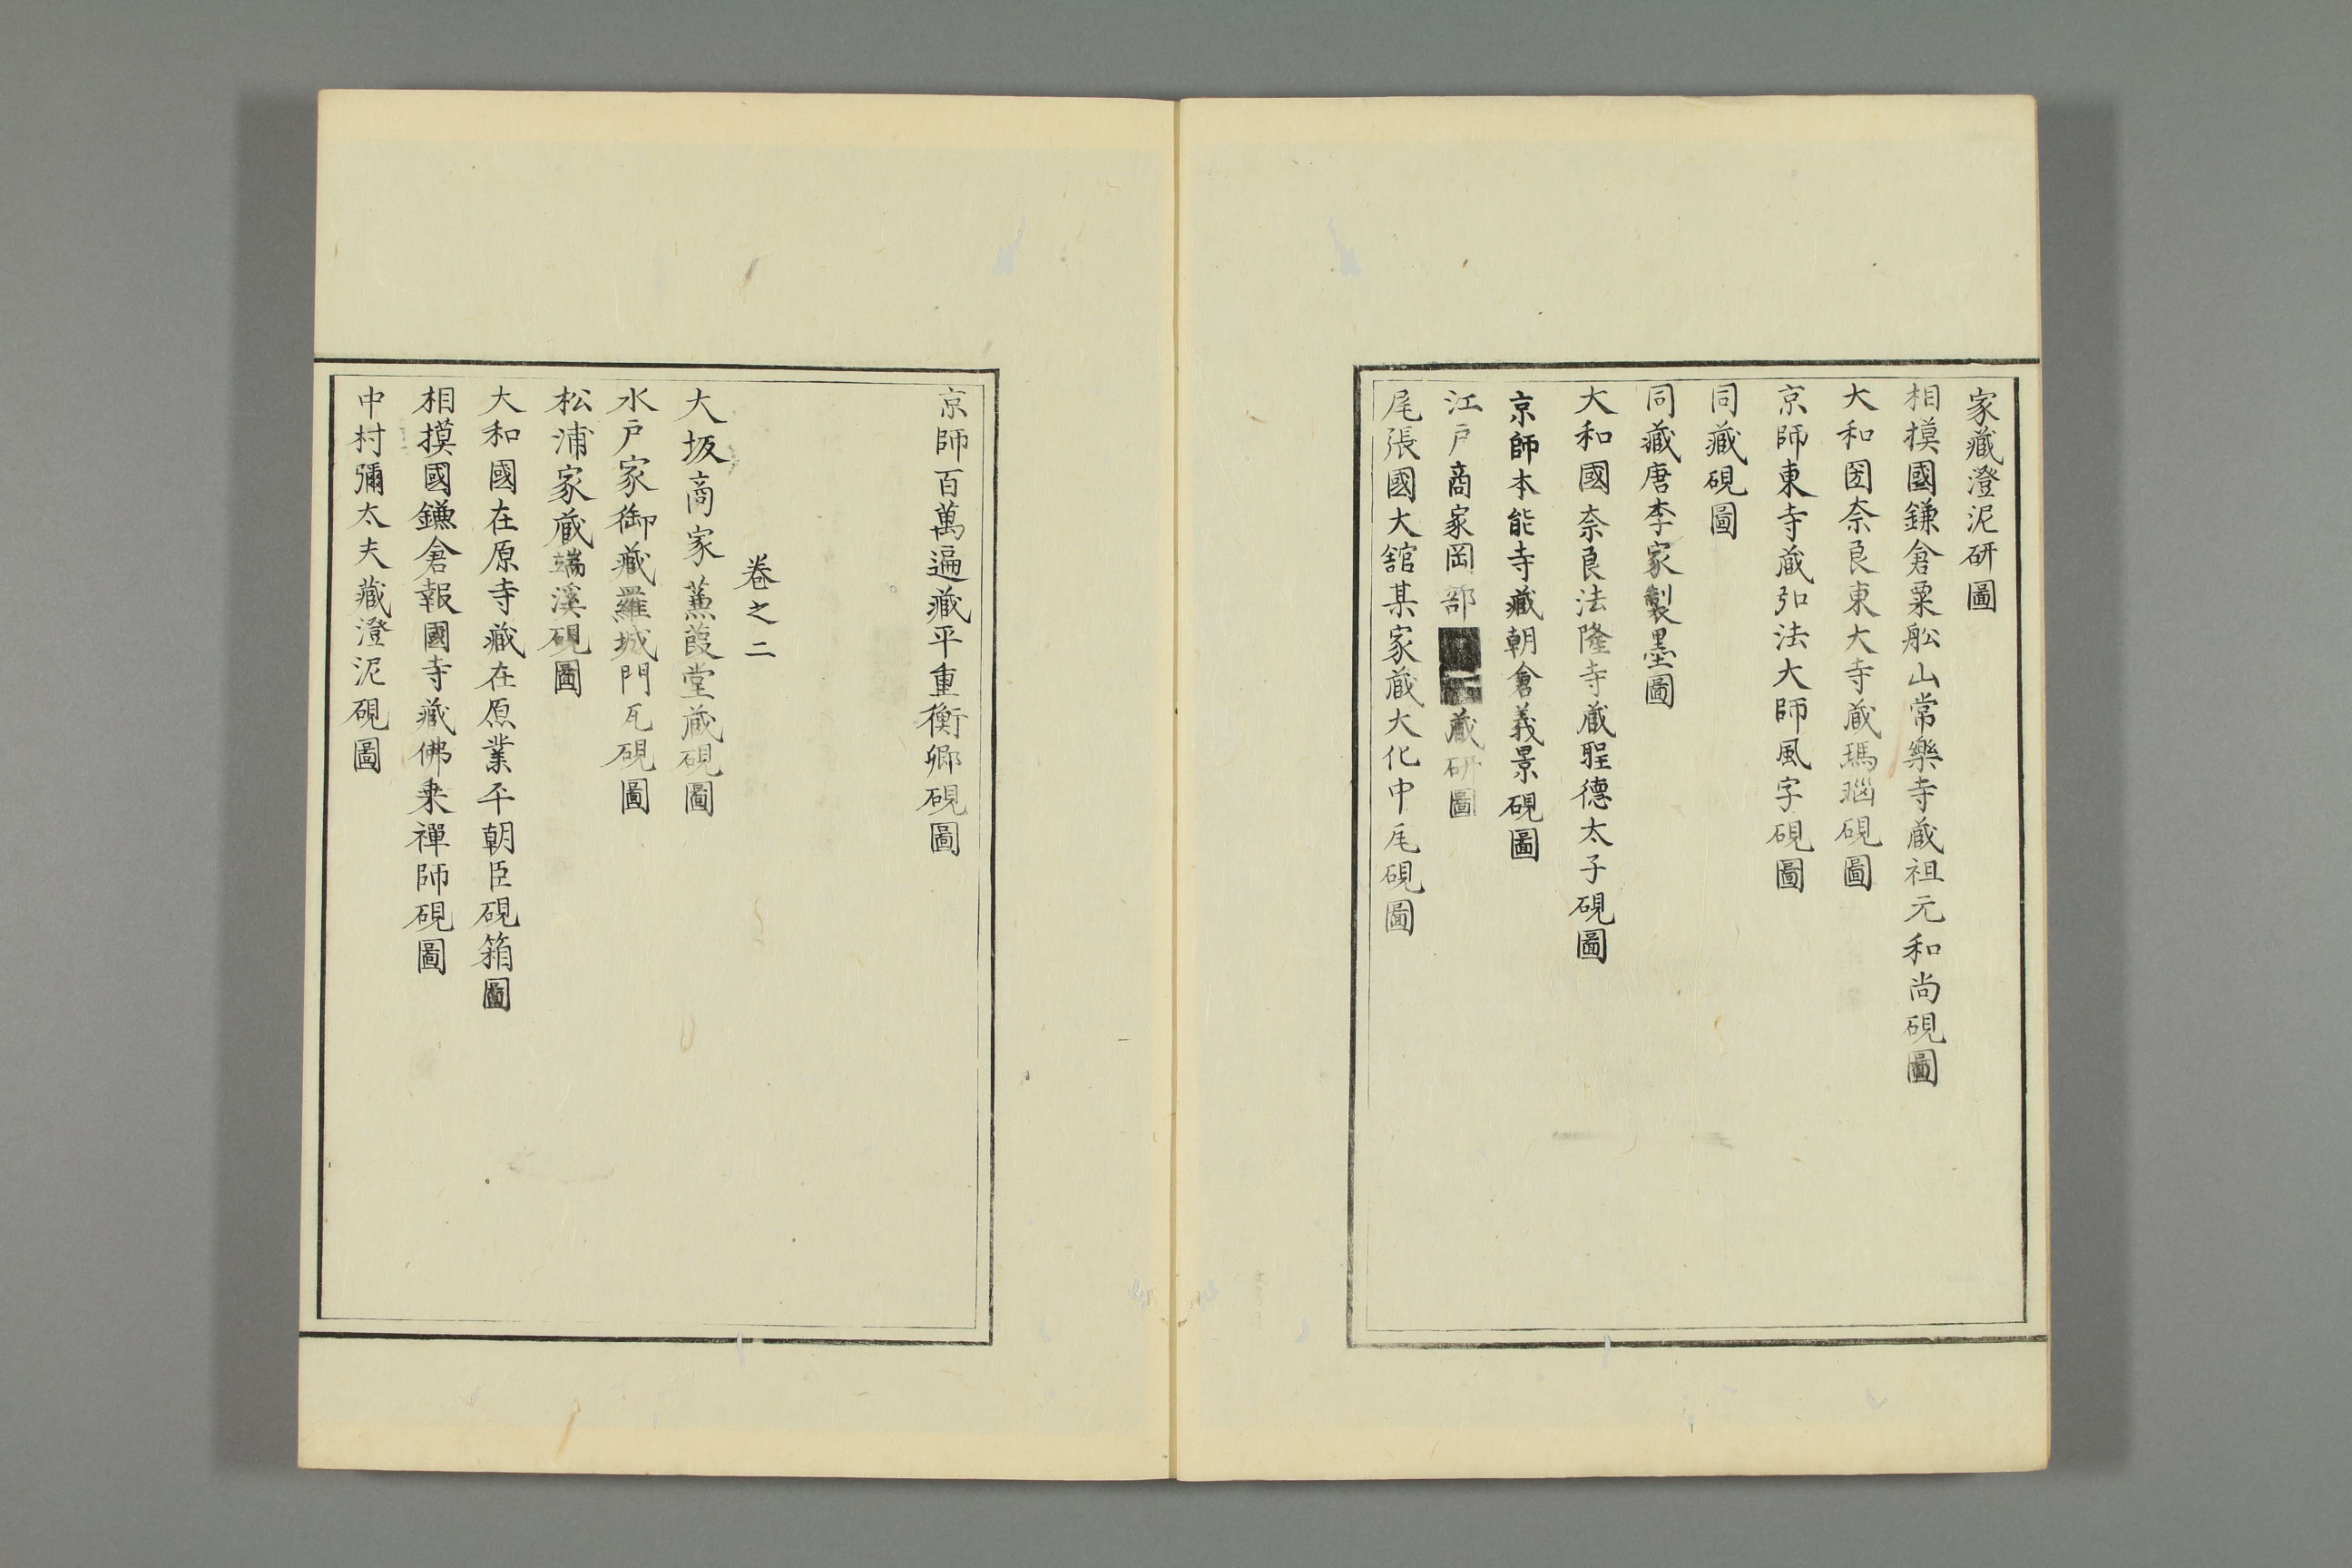 家藏澄泥研圖
相摸國鎌倉粟舩山常樂寺藏祖元和尚硯圖
大和囶奈良東大寺藏瑪瑙硯圖
京師東寺藏弘法大師風字硯圖
同藏硯圖
同藏唐李家製墨圖
大和國奈良法隆寺藏聖德太子硯圖
京師本能寺藏朝倉義景硯圖
江戶商家岡部藏研圖
尾張國大舘某家藏大化中瓦硯圖
京師百萬遍藏平重衡卿硯圖
卷之二
大坂商家蒹葭堂藏硯圖
水戶家御藏羅城門瓦硯圖
松浦家藏端溪硯圖
大和國在原寺藏在原業平朝臣硯箱圖
相摸國鎌倉報國寺藏佛乗禪師硯圖
中村彌太夫藏澄泥硯圖